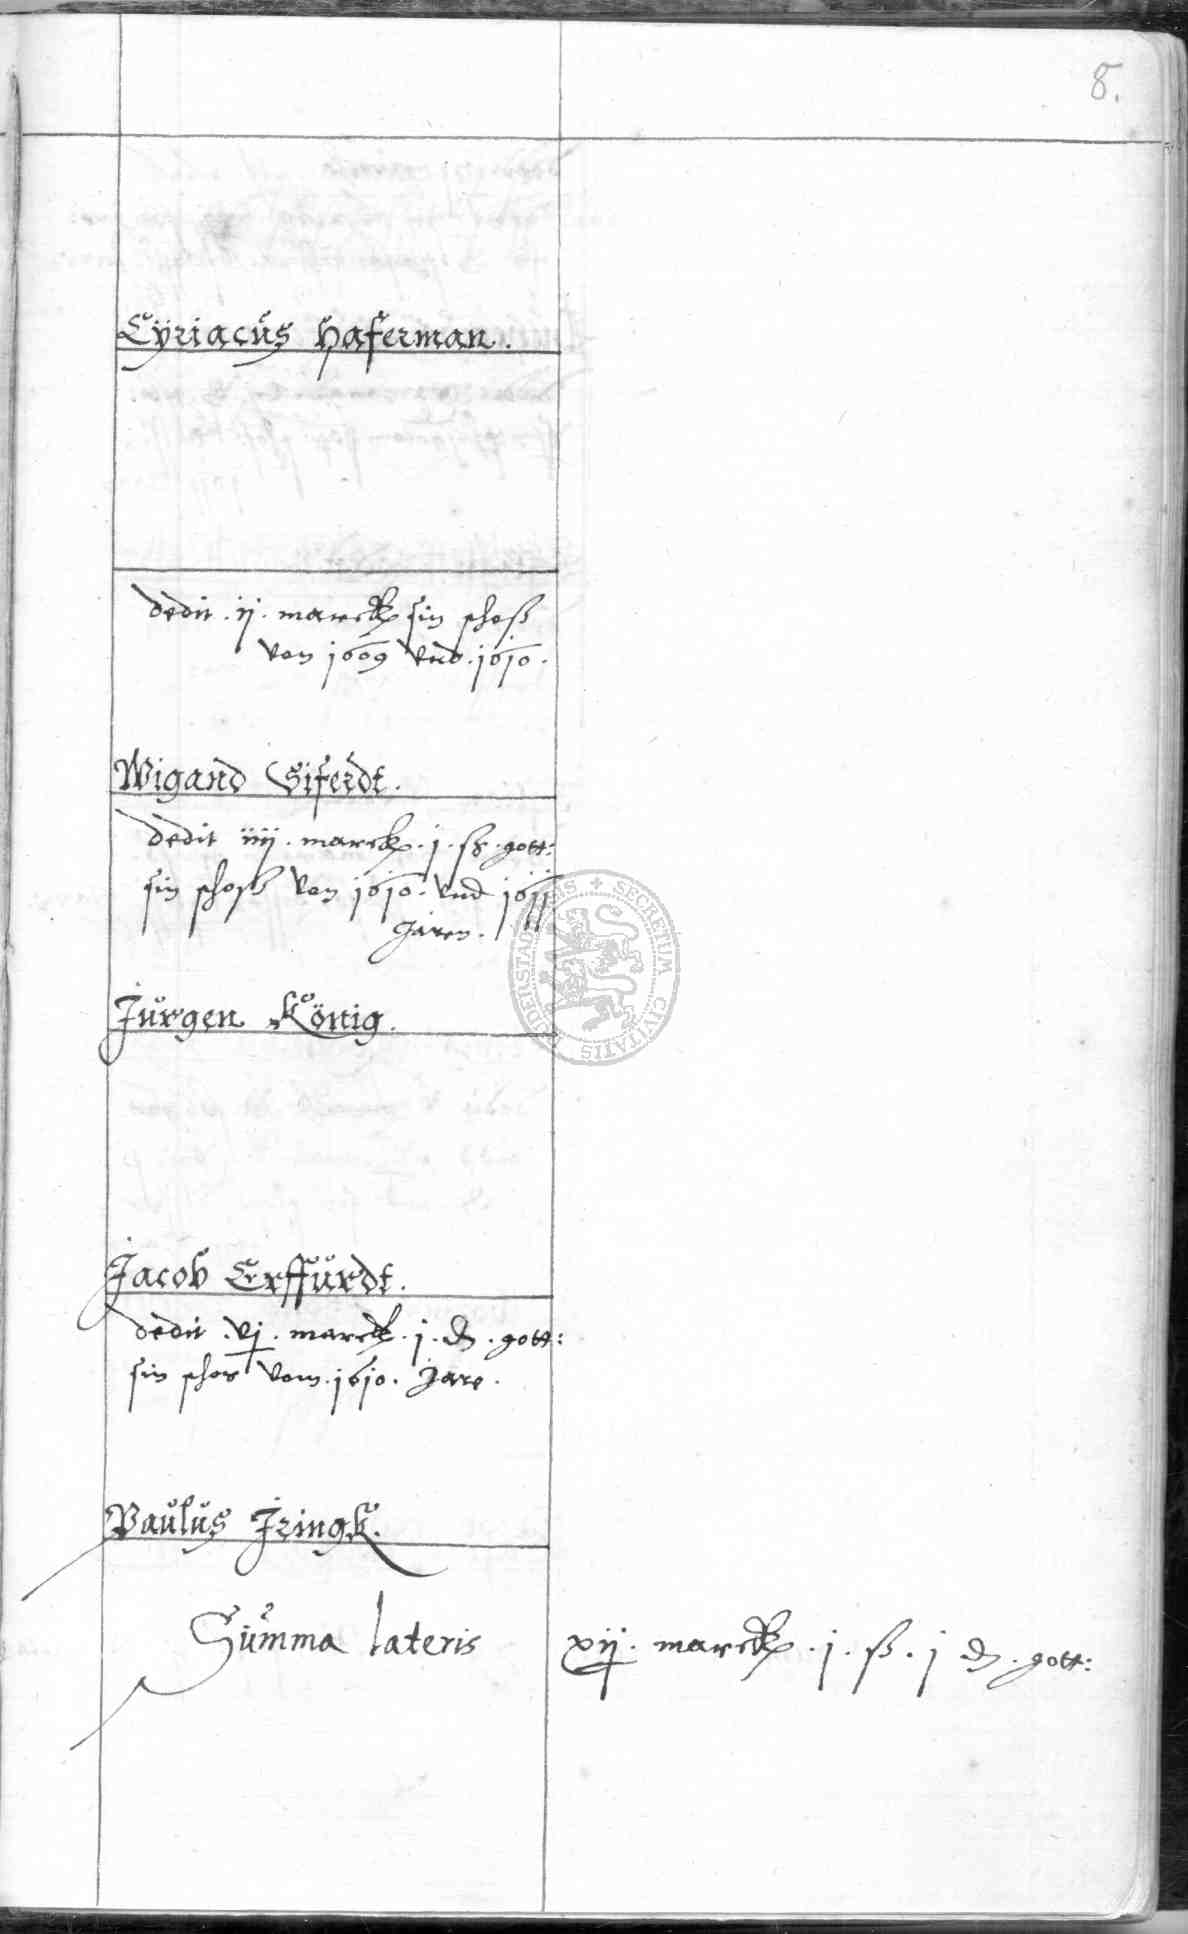 8.
Cÿriacus Haferman.
dedit .ij. marck sin schoß
von 1609 vnd .1610.
Wigand Siferdt.
dedit iiij. marck. j. ß. gott:
sin schoß von 1610. vnd 1611
Jaren.
Jurgen König.
Jacob Erffurdt.
dedit .vj. marck. j. d. gott:
sin schos vom .1610. Jare.
Paulus Jringk.
Summa lateris xij. marck. j. ß. j d. gott:
SECRETUM CIVITATIS DUDERSTADENSIS